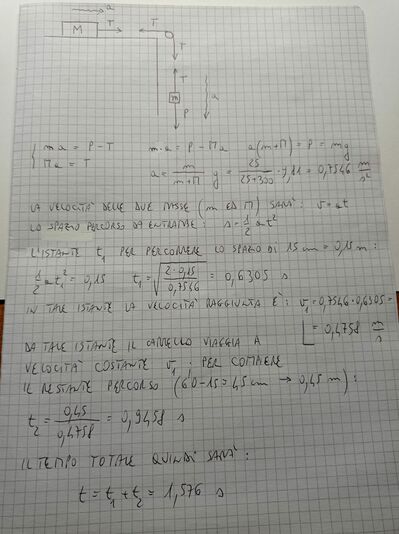 a
M T T
T
T
m a
P
{ ma = P - T     m·a = P - Ma     a(m+M) = P = mg
Ma = T     a = m/(m+M) g = 25/(25+300) · 9,81 = 0,7546 m/s²
LA VELOCITA' DELLE DUE MASSE (m ED M) SARA': v = at
LO SPAZIO PERCORSO DA ENTRAMBE: s = 1/2 at²
L'ISTANTE t₁ PER PERCORRERE LO SPAZIO DI 15 cm = 0,15 m:
1/2 at₁² = 0,15     t₁ = √(2·0,15/0,7546) = 0,6305 s
IN TALE ISTANTE LA VELOCITA' RAGGIUNTA E': v₁ = 0,7546·0,6305 =
= 0,4758 m/s
DA TALE ISTANTE IL CARRELLO VIAGGIA A
VELOCITA' COSTANTE v₁; PER COMPIERE
IL RESTANTE PERCORSO (60-15 = 45 cm → 0,45 m):
t₂ = 0,45/0,4758 = 0,9458 s
IL TEMPO TOTALE QUINDI SARA':
t = t₁ + t₂ = 1,576 s